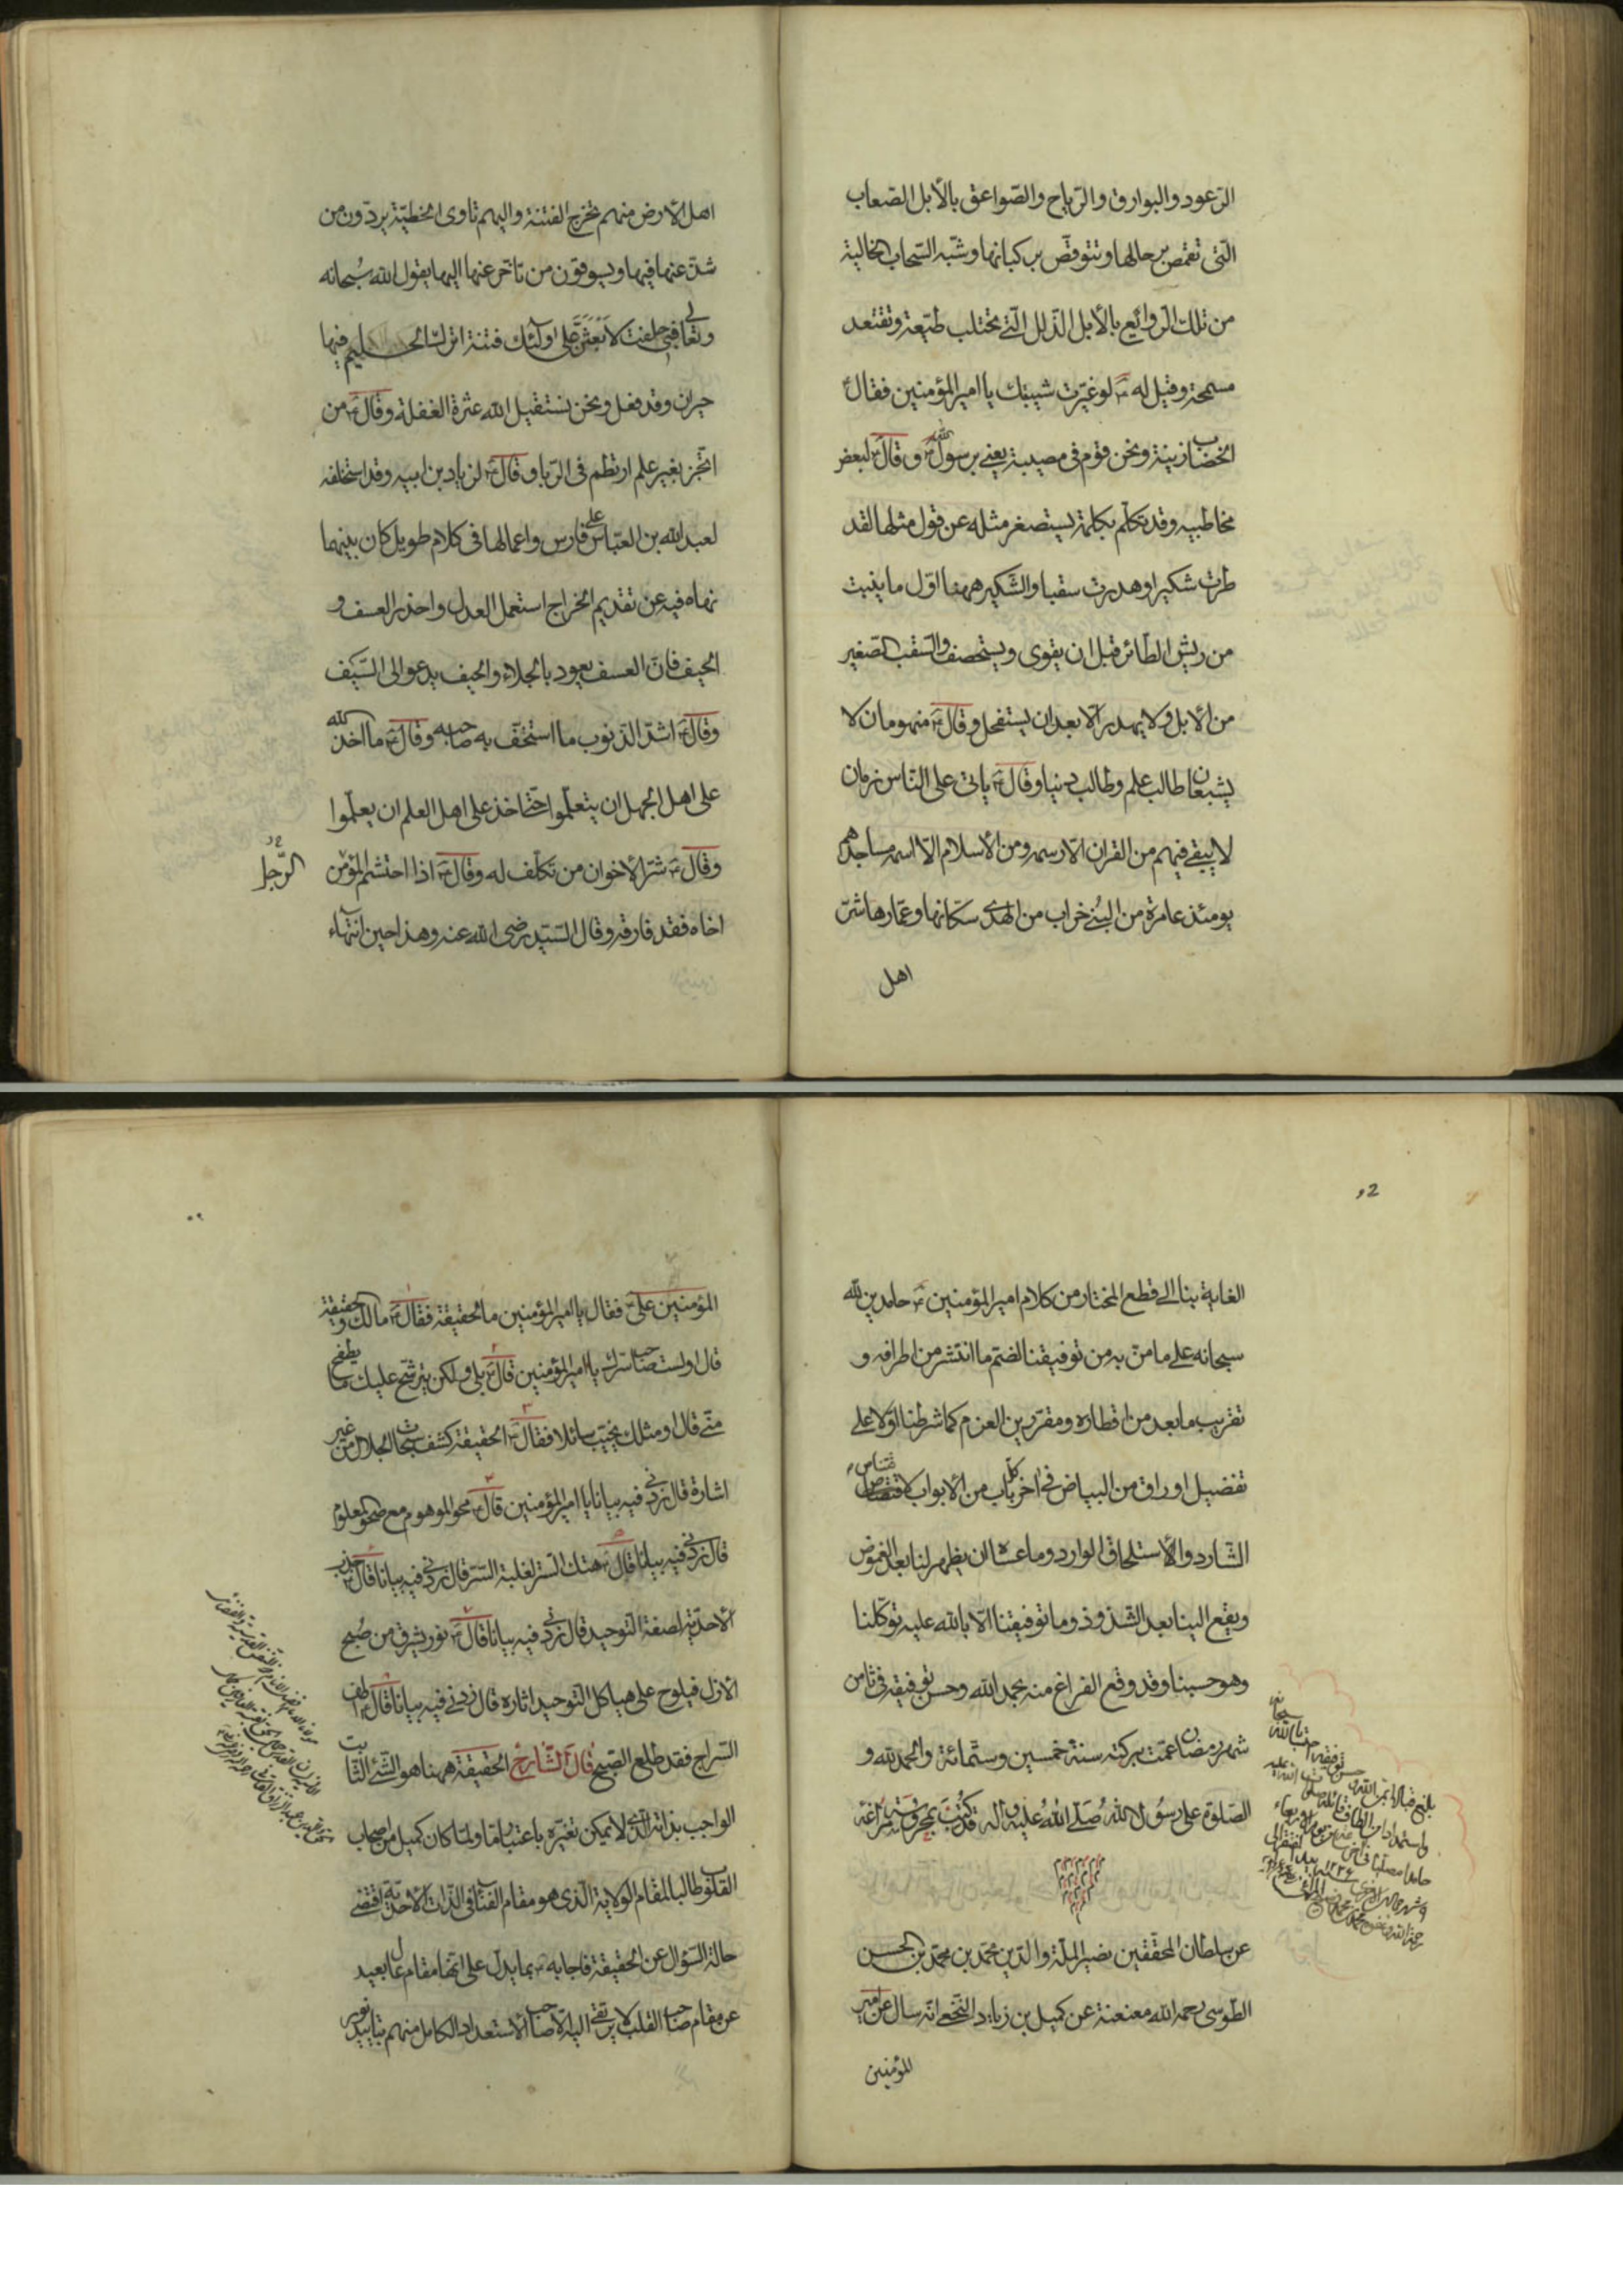 الرّعود والبوارق والرّياح والصّواعق بالأبل الصّعاب
الّتي تقمص برحالها وتتوقّص بركبانها وشبّه السّحاب الخالية
من تلك الرّوائع بالأبل الذّلل الّتي تحتلب طيّعة وتقتعد
مسمحة وقيل له ع لو غيّرت شيبتك يا امير المؤمنين فقال ع
الخضاب زينة ونحن قوم في مصيبة يعني برسول الله وقال ع لبعض
مخاطبيه وقد تكلّم بكلمة يستصغر مثله عن قول مثلها لقد
طرت شكيرا وهدرت سقبا والشّكير ههنا اوّل ما ينبت
من ريش الطّائر قبل ان يقوى ويستحصف والسّقب الصّغير
من الأبل ولا يهدر الّا بعد ان يستفحل وقال ع منهومان لا
يشبعان طالب علم وطالب دنيا وقال ع ياتي على النّاس زمان
لا يبقى فيهم من القران الّا رسمه ومن الأسلام الّا اسمه مساجدهم
يومئذ عامرة من البُنى خراب من الهدى سكّانها وعمّارها شرّ
اهل
اهل الأرض منهم تخرج الفتنة واليهم تاوى الخطيئة يردّون من
شذّ عنها فيها ويسوقون من تاخّر عنها اليها يقول الله سُبحانه
وتعالى فبى حلفت لأبعثنّ على اولئك فتنة اترك الحليم فيها
حيران وقد فعل ونحن نستقيل الله عثرة الغفلة وقال ع من
اتّجر بغير علم ارتطم في الرّبا وقال ع لزياد بن ابيه وقد استخلفه
لعبد الله بن العبّاس على فارس واعمالها في كلام طويل كان بينهما
نهاه فيه عن تقديم الخراج استعمل العدل واحذر العسف و
الحيف فانّ العسف يعود بالجلاء والحيف يدعو الى السّيف
وقال ع اشدّ الذّنوب ما استخفّ به صاحبه وقال ع ما اخذ الله
على اهل الجهل ان يتعلّموا حتّى اخذ على اهل العلم ان يعلّموا
وقال ع شرّ الأخوان من تكلّف له وقال ع اذا احتشم المؤمن
الرّجل
اخاه فقد فارقه وقال السّيّد رضى الله عنه وهذا حين انتهاء
الغاية بنا الى قطع المختار من كلام امير المؤمنين ع حامدين لله
سبحانه على ما منّ به من توفيقنا لضمّ ما انتشر من اطرافه و
تقريب ما بعد من اقطاره ومقرّرين العزم كما شرطنا اوّلا على
تفضيل اوراق من البياض في اخر كلّ باب من الأبواب لاقتناص
الشّارد والأستلحاق الوارد وما عساه ان يظهر لنا بعد الغموض
ويقع الينا بعد الشّذوذ وما توفيقنا الّا بالله عليه توكّلنا
وهو حسبنا وقد وقع الفراغ منه بحمد الله وحسن توفيقه في ثامن
شهر رمضان عمّت بركته سنة خمسين وستّمائة والحمد لله و
الصّلوة على رسُول الله صَلّى اللهُ عليه واله قد كتبت بمحروسة مراغة
عن سلطان المحقّقين نصير الملّة والدّين محمّد بن محمّد بن الحسن
الطّوسى رحمه الله معنعنة عن كميل بن زياد النّخعى انّه سال عن امير
المؤمنين
المؤمنين علىّ ع فقال يا امير المؤمنين ما الحقيقة فقال ع مالك والحقيقة
قال اولست صاحب سرّك يا امير المؤمنين قال ع بلى ولكن يترشّح عليك ما يطفح
منّى قال اومثلك يخيّب سائلا فقال ع الحقيقة كشف سُبحات الجلال من غير
اشارة قال زدنى فيه بيانا يا امير المؤمنين قال ع محو الموهوم مع صحو المعلوم
قال زدنى فيه بيانا قال ع هتك السّتر لغلبة السّرّ قال زدنى فيه بيانا قال ع جذب
الأحديّة لصفة التّوحيد قال زدنى فيه بيانا قال ع نور يشرق من صُبح
الأزل فيلوح على هياكل التّوحيد اثاره قال زدنى فيه بيانا قال ع اطف
السّراج فقد طلع الصّبح قال الشّارح الحقيقة ههنا هو الشّئ الثّابت
الواجب بذاته الّذى لا يمكن تغيّره باعتبار ما ولمّا كان كميل من اصحاب
القلوب طالبا لمقام الولاية الّذى هو مقام الفنا فى الذّات الأحديّة اقتضى
حالة السّؤال عن الحقيقة فاجابه ع بما يدلّ على انّها مقام عال بعيد
عن مقام صاحب القلب لا يرتقى اليه الّا صاحب الأستعداد الكامل منهم بتاييد نور